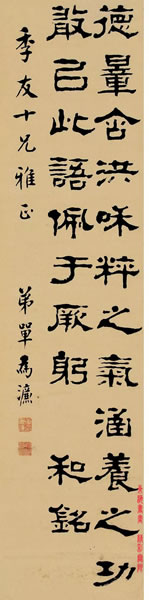 德量含洪咊粹之氣涵養之功
敢㠯此語佩于厥躬 和銘
季友十兄雅正 弟單為濂